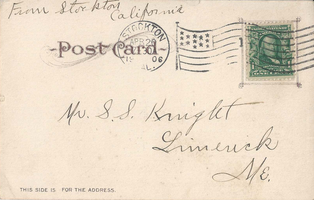 From Stockton
California
Post Card
STOCKTON
APR 26
06
CAL.
1
Mr. S. S. Knight
Limerick
Me.
THIS SIDE IS FOR THE ADDRESS.